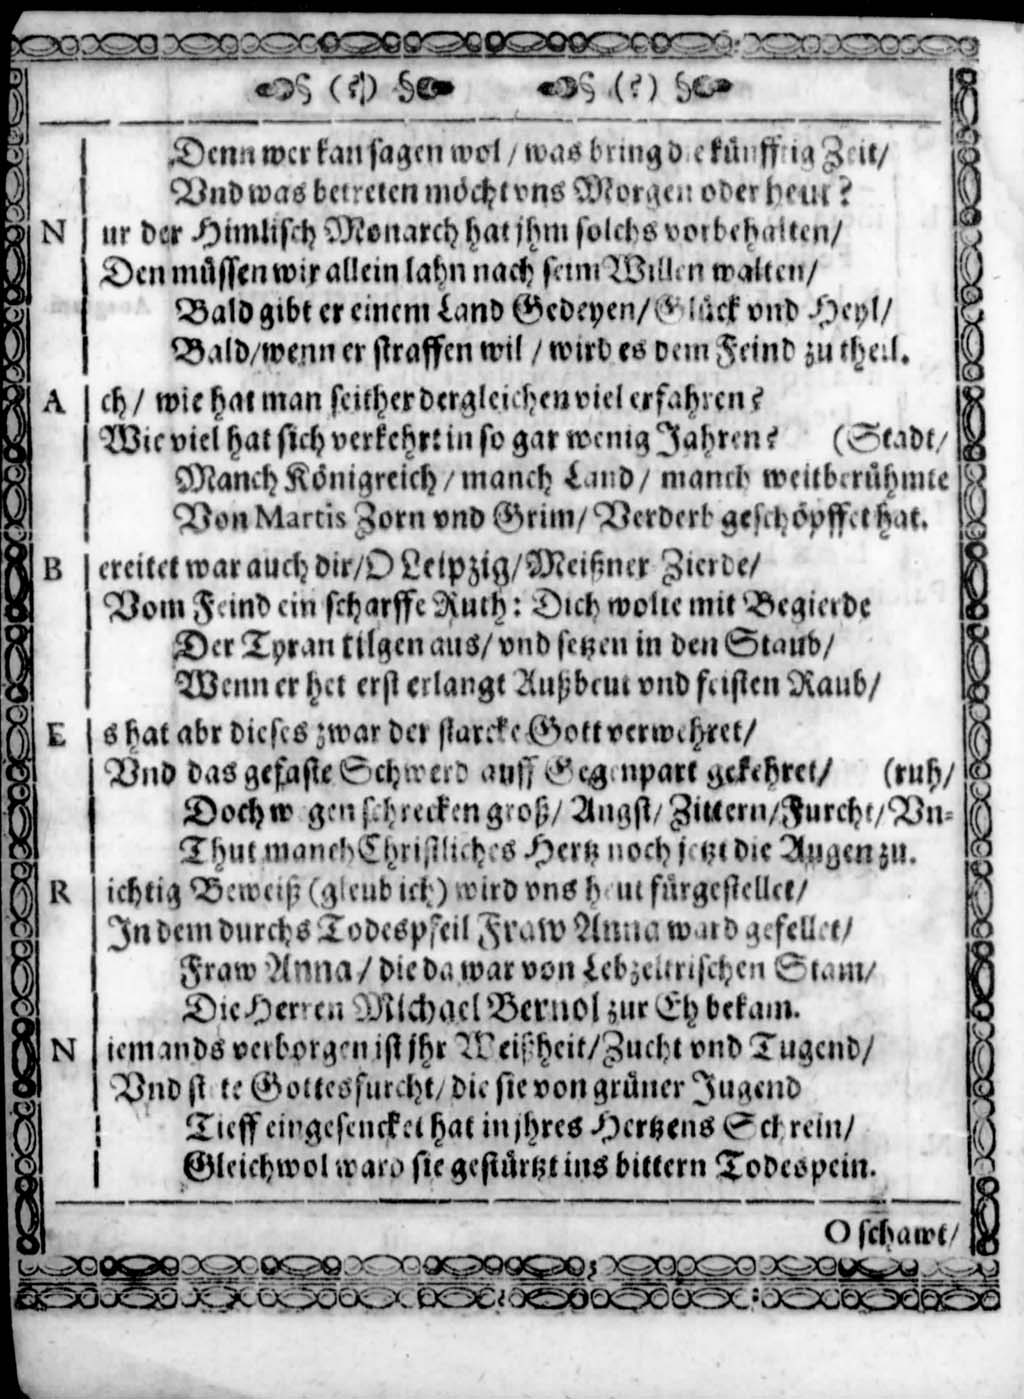 § (?) § § (?) §
Denn wer kan sagen wol / was bring die künfftig Zeit/
Vnd was betreten möcht vns Morgen oder heut?
N ur der Himlisch Monarch hat jhm solchs vorbehalten/
Den müssen wir allein lahn nach seim Willen walten/
Bald gibt er einem Land Gedeyen/ Glück vnd Heyl/
Bald/wenn er straffen wil / wird es dem Feind zu theil.
A ch/ wie hat man seither dergleichen viel erfahren?
Wie viel hat sich verkehrt in so gar wenig Jahren? (Stadt/
Manch Königreich/ manch Land/ manch weitberühmte
Von Martis Zorn vnd Grim/ Verderb geschöpffet hat.
B ereitet war auch dir/O Leipzig/Meißner Zierde/
Vom Feind ein scharffe Ruth: Dich wolte mit Begierde
Der Tyran tilgen aus/ vnd setzen in den Staub/
Wenn er het erst erlangt Außbeut vnd feisten Raub/
E s hat abr dieses zwar der starcke Gott verwehret/
Vnd das gefaste Schwerd auff Gegenpart gekehret/ (ruh/
Doch wegen schrecken groß/ Angst/ Zittern/Furcht/Vn-
Thut manch Christliches Hertz noch jetzt die Augen zu.
R ichtig Beweiß (gleub ich) wird vns heut fürgestellet/
In dem durchs Todespfeil Fraw Anna ward gefellet/
Fraw Anna/ die da war von Lebzeltrischen Stam/
Die Herren Michael Bernol zur Eh bekam.
N iemands verborgen ist jhr Weißheit/Zucht vnd Tugend/
Vnd stete Gottesfurcht/ die sie von grüner Jugend
Tieff eingesencket hat in jhres Hertzens Schrein/
Gleichwol ward sie gestürtzt ins bittern Todespein.
O schawt/